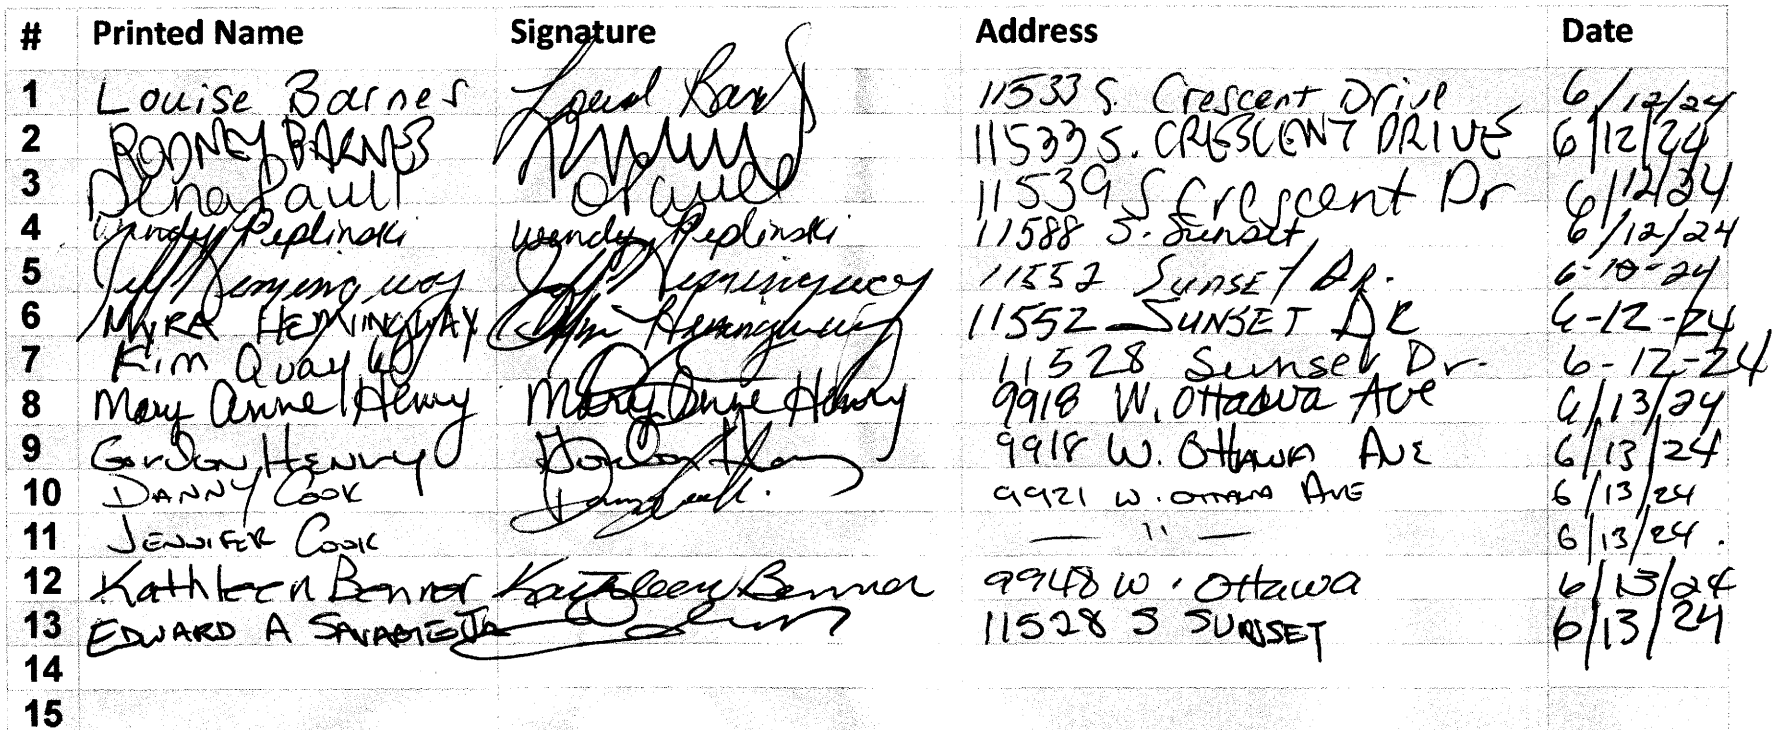 # Printed Name Signature Address Date
1 Louise Barnes 11533 S. Crescent Drive 6/12/24
2 RODNEY BARNES 11533 S. CRESCENT DRIVE 6/12/24
3 Dena Sault 11539 S Crescent Dr 6/12/24
4 Wendy Peplinski Wendy Peplinski 11588 S. Sunset 6/12/24
5 Jeff Hemingway Jeff Hemingway 11552 SUNSET DR. 24
6 MYRA HEMINGWAY Hemingway 11552 SUNSET DR 6-12-24
7 Kim Quayle 11528 Sunset Dr. 6-12-24
8 Mary Anne Henry Mary Anne Henry 9918 W. Ottawa Ave 6/13/24
9 GORDON HENRY 9918 W. OTTAWA AVE 6/13/24
10 DANNY COOK 9921 W. OTTAWA AVE 6/13/24
11 JENNIFER COOK — " — 6/13/24.
12 Kathleen Benner Kathleen Benner 9948 W. Ottawa 6/13/24
13 EDWARD A SAVAGE JR 11528 S SUNSET 6/13/24
14
15